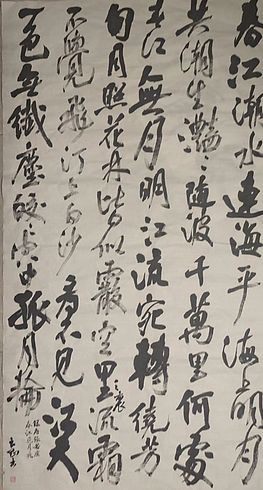 春江潮水連海平海上明月
共潮生灩〻隨波千萬里何處
春江無月明江流宛轉繞芳
甸月照花林皆似霰空里流霜
不覺飛汀上白沙看不見江天
一色無纖塵皎〻空中孤月輪
春江花月夜